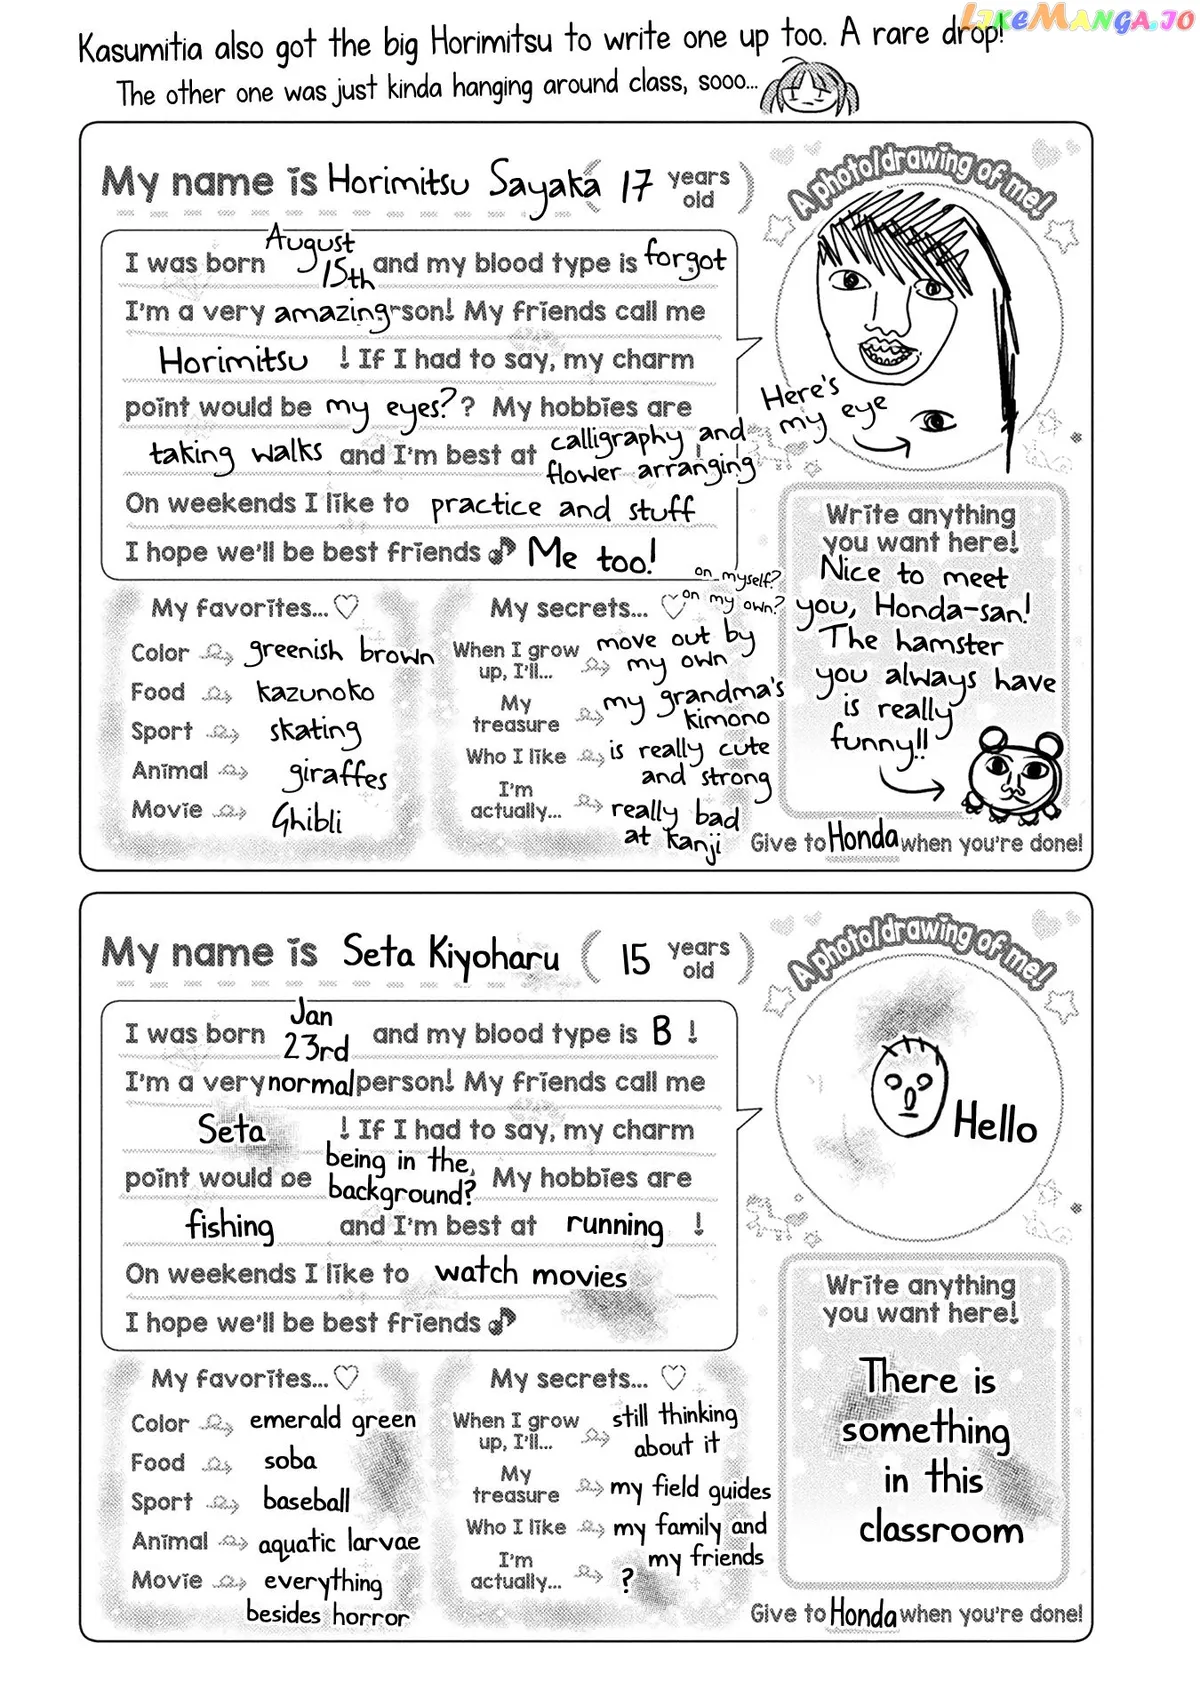 LIKEMANGA.IO
Kasumitia also got the big Horimitsu to write one up too. A rare drop!
The other one was just kinda hanging around class, sooo...
My name is Horimitsu Sayaka ( 17 years old )
A photo/drawing of me!
I was born August 15th and my blood type is forgot
I'm a very amazing rson! My friends call me
Horimitsu ! If I had to say, my charm
point would be my eyes? ? My hobbies are
taking walks and I'm best at calligraphy and flower arranging !
On weekends I like to practice and stuff
I hope we'll be best friends♪ Me too!
Here's
my eye
My favorites...♡
Color greenish brown
Food kazunoko
Sport skating
Animal giraffes
Movie Ghibli
My secrets...♡
on myself?
on my own?
When I grow up, I'll... move out by my own
My treasure my grandma's kimono
Who I like is really cute and strong
I'm actually... really bad at kanji
Write anything
you want here!
Nice to meet
you, Honda-san!
The hamster
you always have
is really
funny!!
Give to Honda when you're done!
My name is Seta Kiyoharu ( 15 years old )
A photo/drawing of me!
I was born Jan 23rd and my blood type is B !
I'm a very normal person! My friends call me
Seta ! If I had to say, my charm
point would be being in the background? My hobbies are
fishing and I'm best at running !
On weekends I like to watch movies
I hope we'll be best friends♪
Hello
My favorites...♡
Color emerald green
Food soba
Sport baseball
Animal aquatic larvae
Movie everything besides horror
My secrets... ♡
When I grow up, I'll... still thinking about it
My treasure my field guides
Who I like my family and my friends
I'm actually... ?
Write anything
you want here!
There is
something
in this
classroom
Give to Honda when you're done!